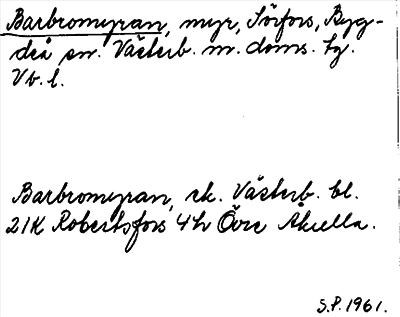 Barbromyran, myr, Sörfors, Byg-
deå sn. Västerb. m. doms. tg.
Vb. l.
Barbromyran, ek. Västerb. bl.
21K Robertsfors 4h Övre Akulla.
S.P. 1961.